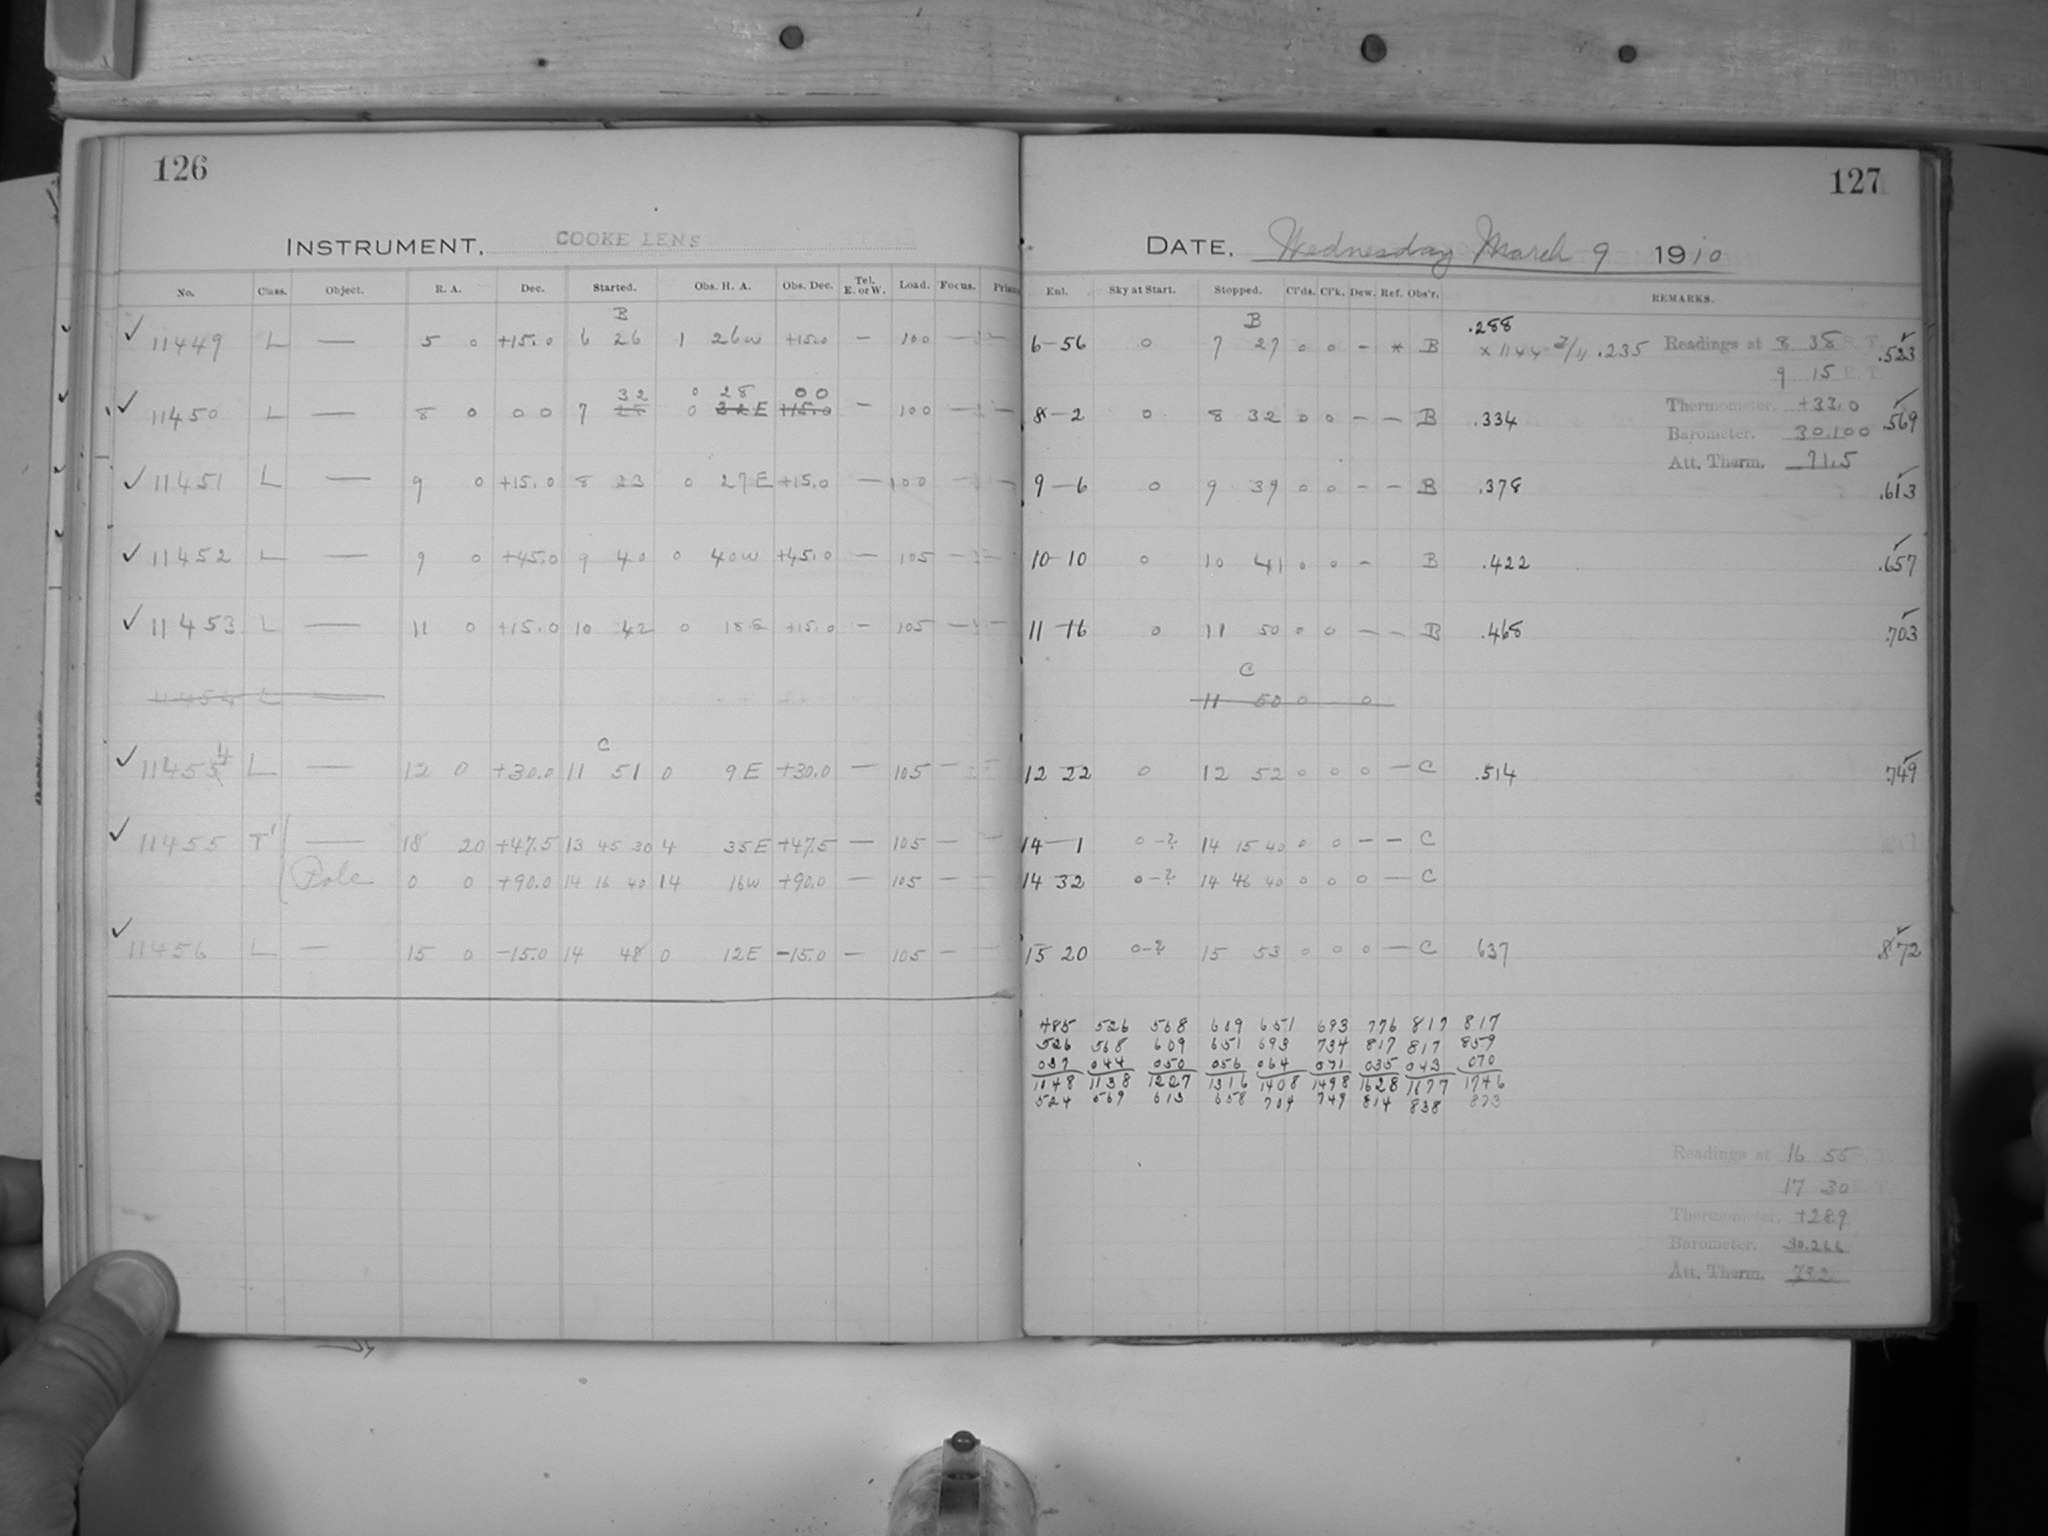 126
INSTRUMENT, COOKE LENS
No. Class. Object. R. A. Dec. Started. Obs. H. A. Obs. Dec. Tel. E. or W. Load. Focus.
B
✓ 11449 L — 5 0 +15.0 6 26 1 26w +15.0 — 100 —
32 0 28 00
✓ 11450 L — 8 0 0 0 7 28 0 32 E +15.0 — 100 —
✓ 11451 L — 9 0 +15.0 8 23 0 27 E +15.0 — 100 —
✓ 11452 L — 9 0 +45.0 9 40 0 40w +45.0 — 105 —
✓ 11453 L — 11 0 +15.0 10 42 0 18E +15.0 — 105 —
11454 L —
C
✓ 114554 L — 12 0 +30.0 11 51 0 9 E +30.0 — 105 —
✓ 11455 T' — 18 20 +47.5 13 45 30 4 35 E +47.5 — 105 —
Pole 0 0 +90.0 14 16 40 14 16w +90.0 — 105 —
✓ 11456 L — 15 0 -15.0 14 48 0 12E -15.0 — 105 —
127
DATE, Wednesday March 9 1910
Enl. Sky at Start. Stopped. Cl'ds. Cl'k. Dew. Ref. Obs'r. REMARKS.
B .288
6-56 0 7 27 0 0 - * B .235 Readings at 8 38 S. T. .523
9 15 E. T.
8-2 0 8 32 0 0 - - B .334 Thermometer. +33.0 .569
Barometer. 30.100
Att. Therm. 71.5
9-6 0 9 39 0 0 - - B .378 .613
10-10 0 10 41 0 0 - B .422 .657
11-16 0 11 50 0 0 - - B .468 .703
C
11 50 0 0
12 22 0 12 52 0 0 0 - C .514 .749
14-1 0-? 14 15 40 0 0 - - C
14 32 0-? 14 46 40 0 0 0 - C
15 20 0-? 15 53 0 0 0 - C 637 .872
485 526 568 609 651 693 776 817 817
526 568 609 651 693 734 817 817 859
037 044 050 056 064 071 035 043 070
1048 1138 1227 1316 1408 1498 1628 1677 1746
524 569 613 658 704 749 814 838 873
Readings at 16 55
17 30
Thermometer. +28.9
Barometer. 30.266
Att. Therm. 73.2